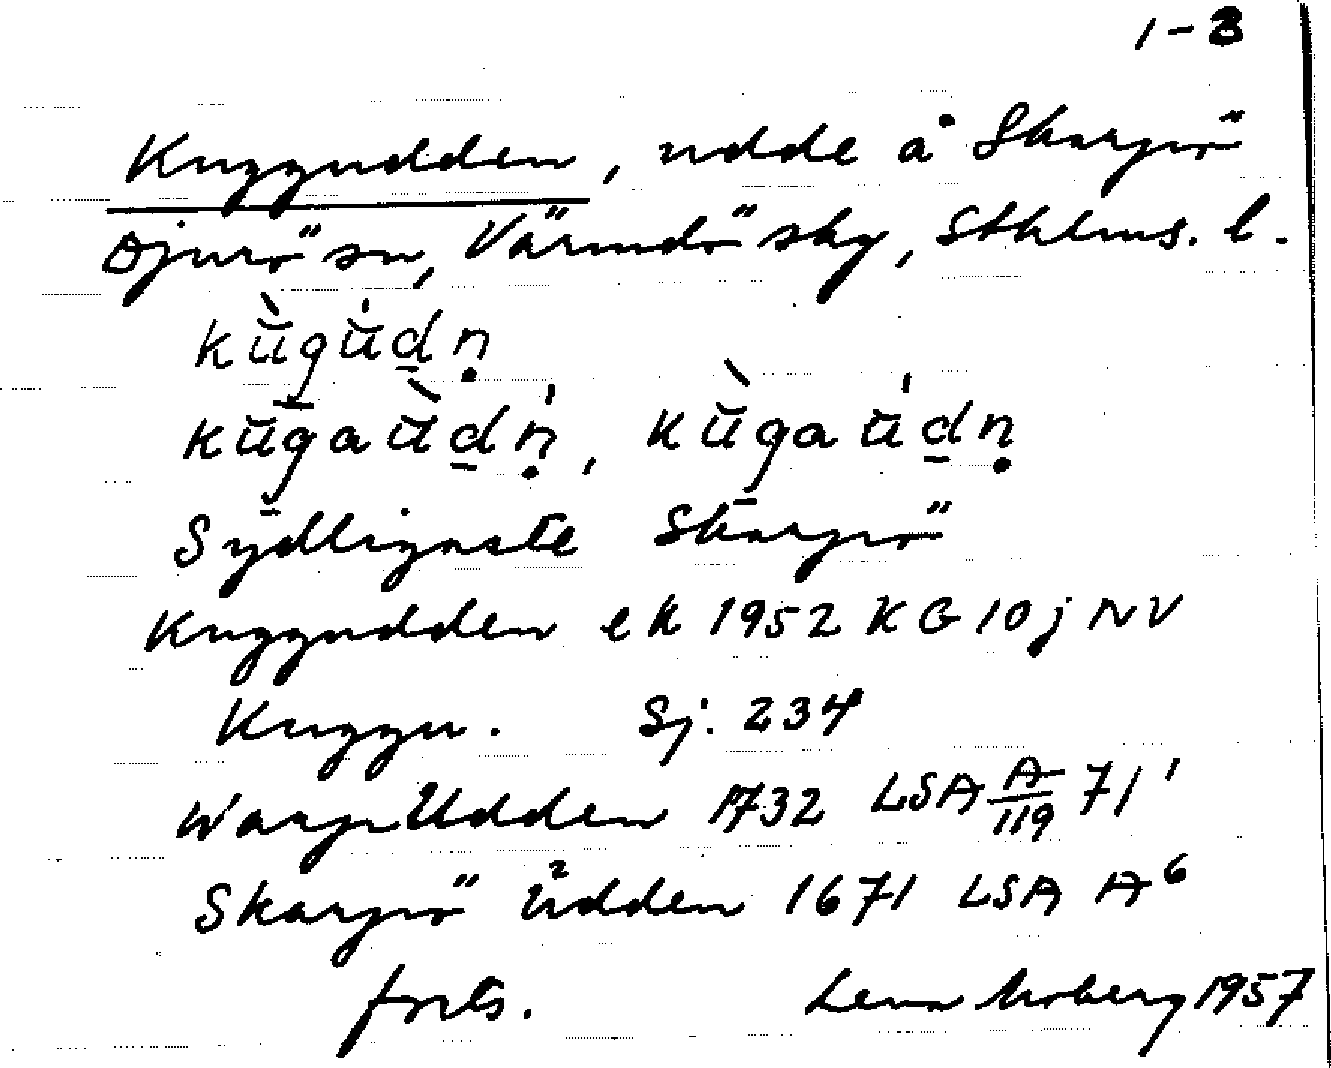 1-3
Kuggudden, udde å Skarpö
Djurö sn, Värmdö sky, Sthlms. l.
kùgúdn
kūgaùdń, kùgaúdn
Sydligaste Skarpö
Kuggudden ek 1952 KG 10j NV
Kuggu. Sj. 234
Warp Udden 1732 LSA A/119 71'
Skarpö Udden 1671 LSA A6
forts. Lena Moberg 1957